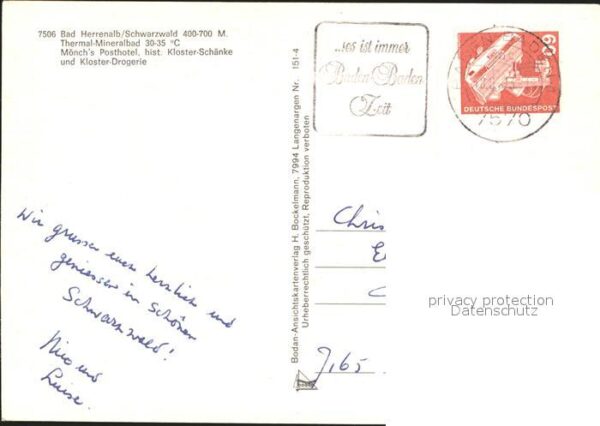 7506 Bad Herrenalb/Schwarzwald 400-700 M.
Thermal-Mineralbad 30-35 °C
Mönch's Posthotel, hist. Kloster-Schänke
und Kloster-Drogerie
Wir grüssen euch herzlich und
geniessen im schönen
Schwarzwald!
Nico und
Luise.
Bodan-Ansichtskartenverlag H. Bockelmann, 7994 Langenargen Nr. 151-4
Urheberrechtlich geschützt, Reproduktion verboten
...es ist immer
Baden-Baden
Zeit
60
DEUTSCHE BUNDESPOST
7570
Chris
privacy protection
Datenschutz